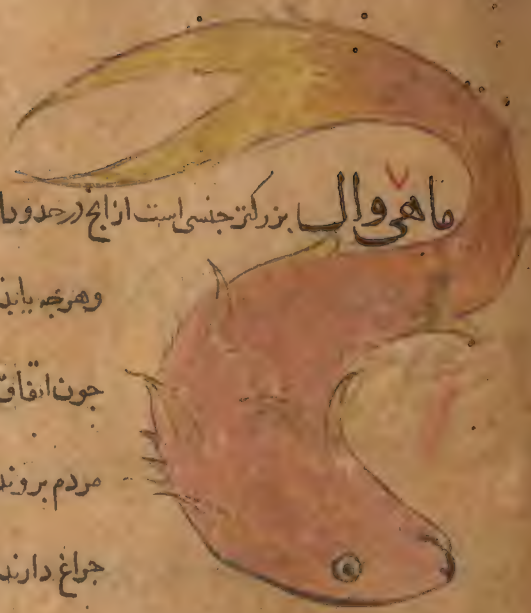 ماهی وال بزرکتر جنسی است از انج در حدود
وهرجه یابد
جون اتفاق
مردم بروند
جراغ دارند